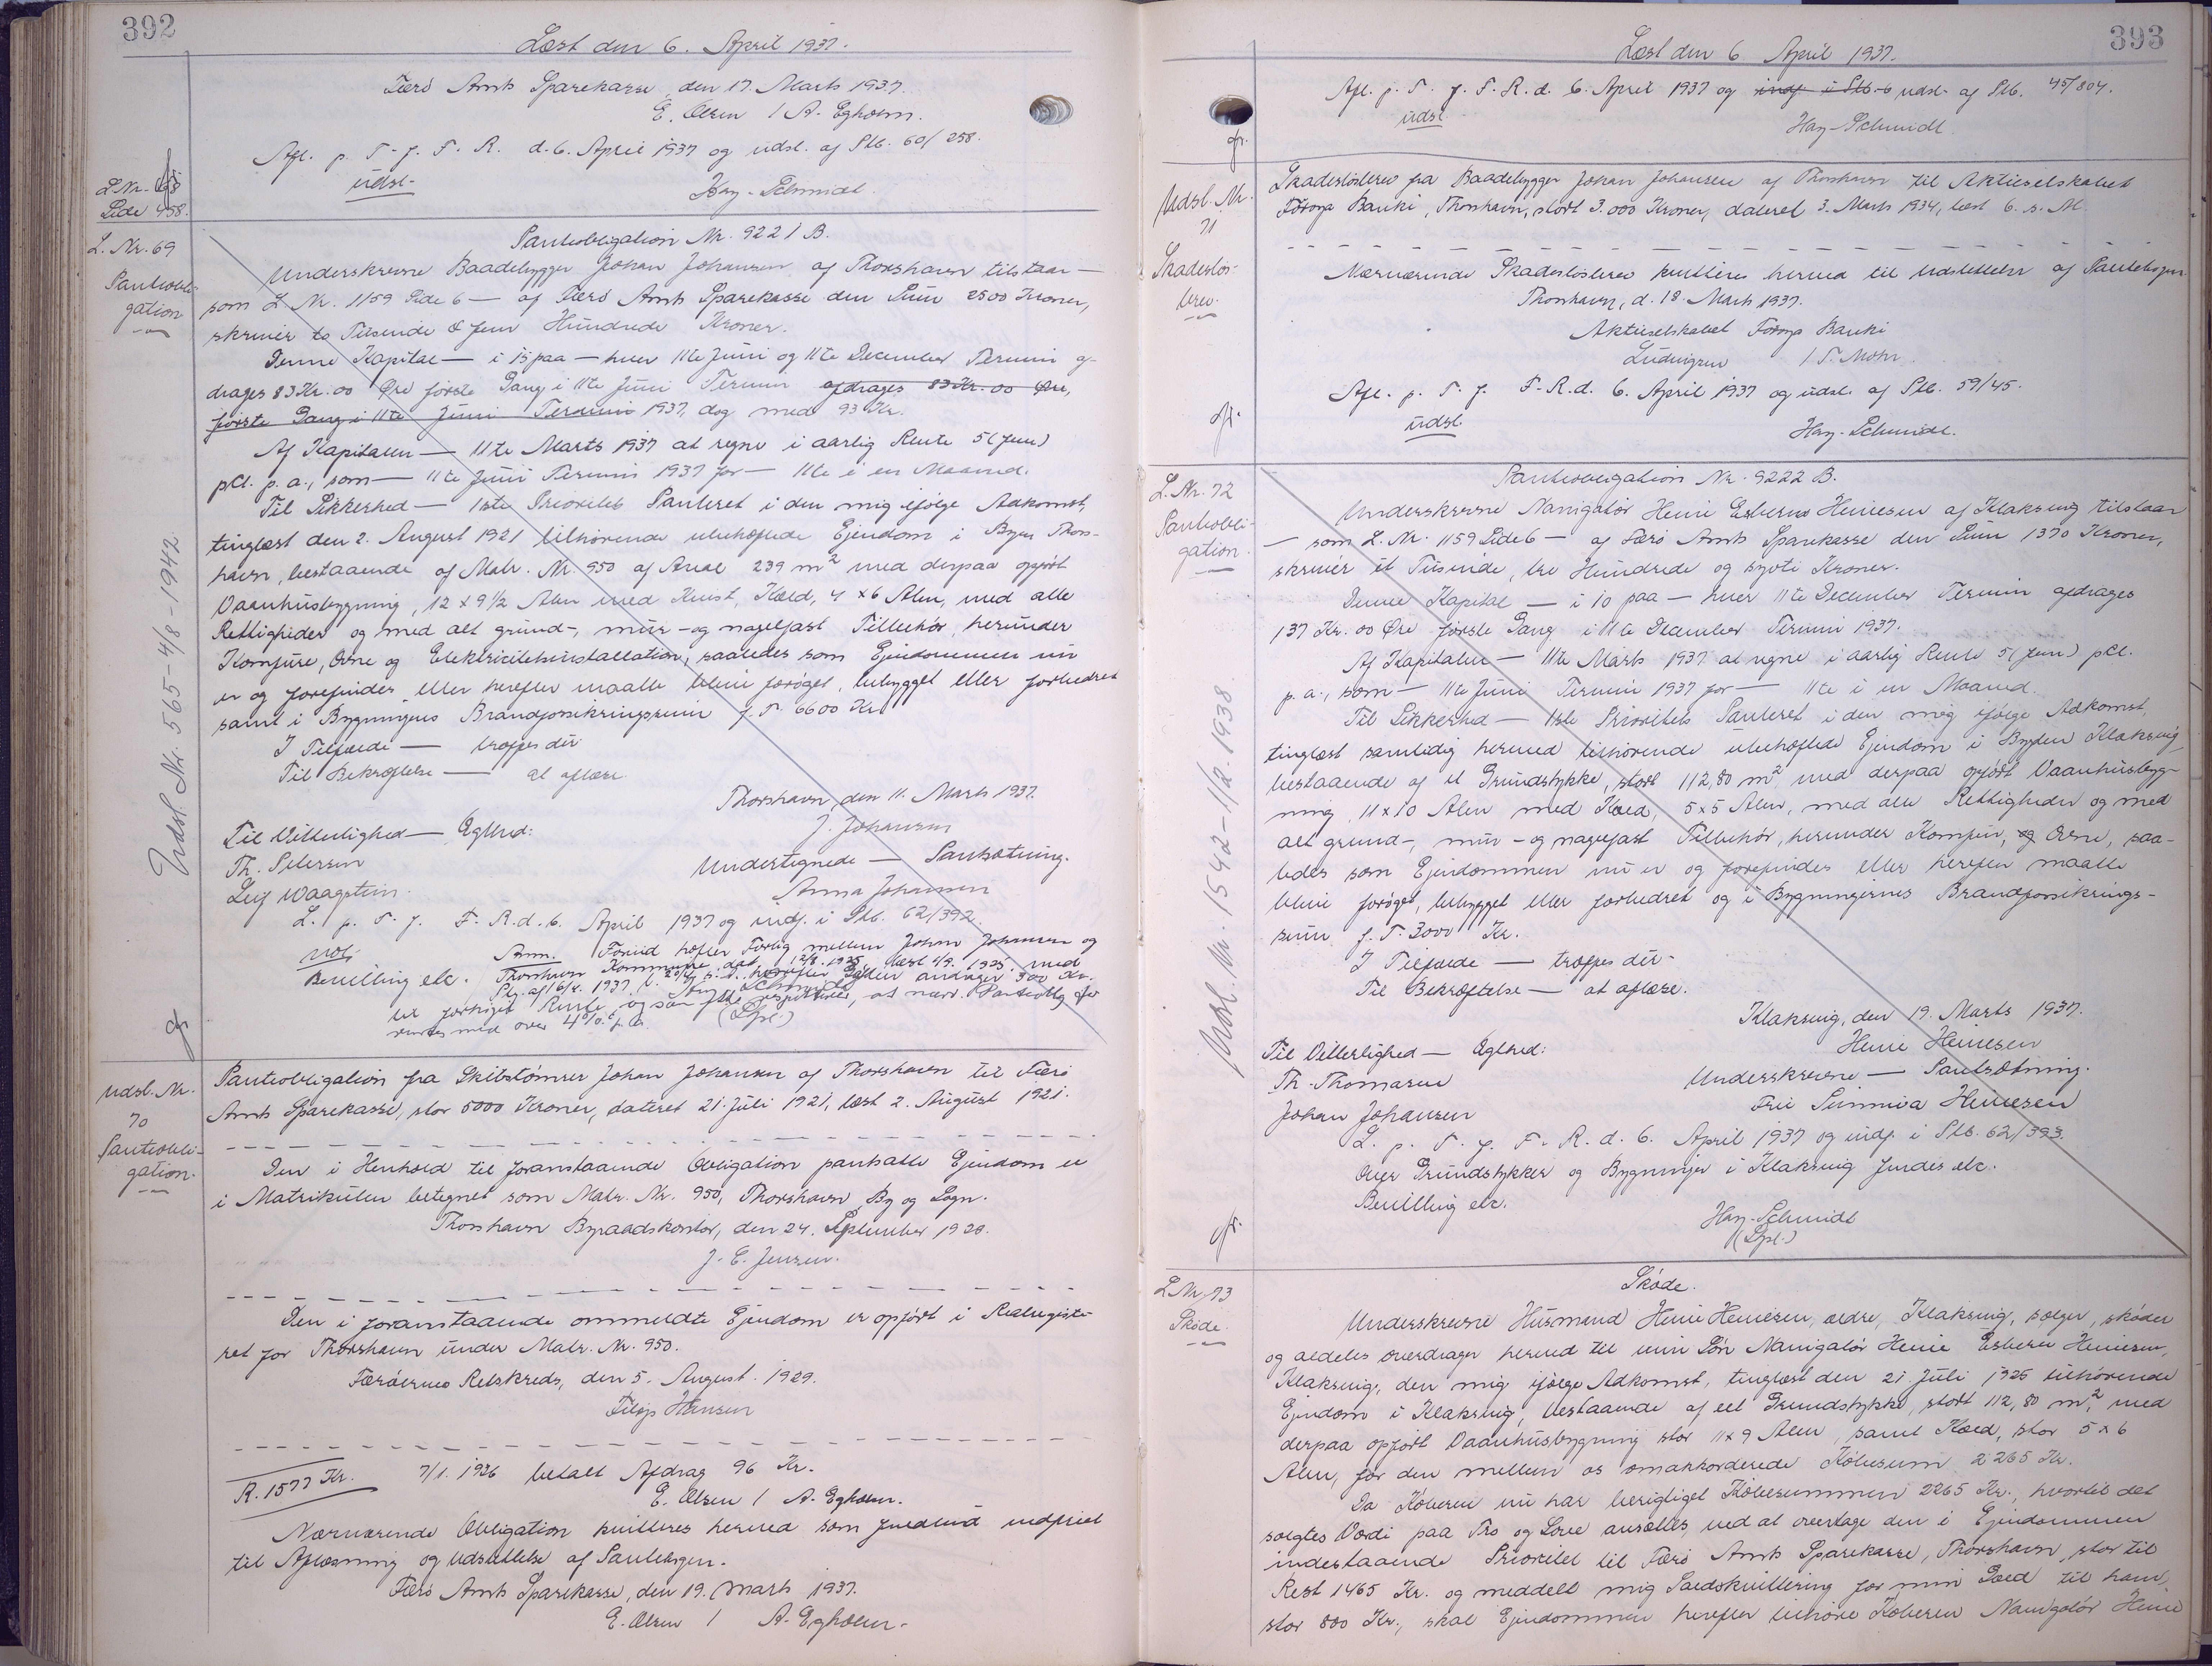 392
Læst den 6. April 1937.
Færö Amts Sparekasse, den 17. Marts 1937.
E. Olsen / A. Egholm.
Afl. p. T. f. F. R. d. 6. April 1937 og udsl. af Ptb. 60/258.
udsl.
Hay-Schmidt
L Nr.
Side 458.
L. Nr. 69
Pantobli-
gation
Udsl. Nr. 565 - 4/8 - 1942
Pantobligation Nr. 9221 B.
Underskrevne Baadebygger Johan Johansen af Thorshavn tilstaar —
som L Nr. 1159 Side 6 — af Færö Amts Sparekasse den Sum 2500 Kroner,
skriver to Tusinde & fem Hundrede Kroner.
Denne Kapital — i 15 paa — hver 11te Juni og 11te December Termin af-
drages 83 Kr. 00 Øre første Gang i 11te Juni Termin afdrages 83 Kr. 00 Øre,
første Gang i 11te Juni Termin 1937, dog med 93 Kr.
Af Kapitalen — 11te Marts 1937 at regne i aarlig Rente 5 (fem)
pCt. p. a., som — 11te Juni Termin 1937 for — 11te i en Maaned.
Til Sikkerhed — 1ste Prioritets Panteret i den mig ifølge Adkomst,
tinglæst den 2. August 1921 tilhørende ubehæftede Ejendom i Byen Thors-
havn, bestaaende af Matr. Nr. 950 af Areal 239 m² med derpaa opført
Vaanhusbygning, 12 x 9½ Alen med Kvist, Kæld, 4 x 6 Alen, med alle
Rettigheder og med alt grund-, mur- og nagelfast Tilbehør, herunder
Komfure, Ovne og Elektricitetsinstallation, saaledes som Ejendommen nu
er og forefindes, eller herefter maatte blive forøget, bebygget eller forbedret
samt i Bygningens Brandforsikringssum f. T. 6600 Kr.
I Tilfælde — træffes dér
Til Bekræftelse — at aflæse.
Thorshavn, den 11. Marts 1937.
J. Johansen
Til Vitterlighed — Ægthed:
Th. Petersen
Leif Waagstein.
Undertegnede — Pantsætning.
Anna Johansen
L. p. T. f. F. R. d. 6. April 1937 og indf. i Ptb. 62/392.
not
Bevilling etc.
Anm. Forud hæfter Forlig mellem Johan Johansen og
Thorshavn Kommune, dat. 12/8. 1925, læst 1/9. 1925, med
til forhøjet Rente og saa ofte respektivt, at nærv. Pantoblg. for
rentes med over 4% p. a. (Dpl.)
Udsl. Nr.
70
Pantobli-
gation.
Pantobligation fra Skibstømrer Johan Johansen af Thorshavn til Færö
Amts Sparekasse, stor 5000 Kroner, dateret 21. Juli 1921, læst 2. August 1921.
Den i Henhold til foranstaaende Obligation pantsatte Ejendom er
i Matrikulen betegnet som Matr. Nr. 950, Thorshavn By og Sogn.
Thorshavn Byraadskontor, den 24. September 1928.
J. E. Jensen.
Den i foranstaaende ommeldte Ejendom er opført i Realregiste-
ret for Thorshavn under Matr. Nr. 950.
Færöernes Retskreds, den 5. August 1929.
Filip Hansen
R. 1577 Kr. 7/1. 1936 betalt Afdrag 96 Kr.
E. Olsen / A. Egholm.
Nærværende Obligation kvitteres herved som fuldtud indfriet
til Aflæsning og Udslettelse af Pantebogen.
Færö Amts Sparekasse, den 19. Marts 1937.
E. Olsen / A. Egholm.
393
Læst den 6 April 1937.
Afl. p. T. f. F. R. d. 6. April 1937 og indf. i Ptb. 6 udsl. af Ptb. 45/804.
udsl.
Hay-Schmidt.
Udsl. Nr.
71
Skadesløs-
brev.
Skadesløsbrev fra Baadebygger Johan Johansen af Thorshavn til Aktieselskabet
Föroya Banki, Thorshavn, stort 3.000 Kroner, dateret 3. Marts 1934, læst 6. s. M.
Nærværende Skadesløsbrev kvitteres herved til Udslettelse af Pantebogen
Thorshavn, d. 18. Marts 1937.
Aktieselskabet Föroya Banki
Ludvigsen / T. Mohr.
Afl. p. T. f. F. R. d. 6. April 1937 og udsl. af Ptb. 59/45.
udsl.
Hay-Schmidt.
L. Nr. 72
Pantobli-
gation.
Udsl. Nr. 1542 - 1/12. 1938
Pantobligation Nr. 9222 B.
Underskrevne Navigatør Heine Esbern Heinesen af Klaksvig tilstaar
— som L. Nr. 1159 Side 6 — af Færö Amts Sparekasse den Sum 1370 Kroner,
skriver et Tusinde, tre Hundrede og syvti Kroner.
Denne Kapital — i 10 paa — hver 11te December Termin afdrages
137 Kr. 00 Øre første Gang i 11te December Termin 1937.
Af Kapitalen — 11te Marts 1937 at regne i aarlig Rente 5 (fem) pCt.
p. a., som — 11te Juni Termin 1937 for — 11te i en Maaned.
Til Sikkerhed — 1ste Prioritets Panteret i den mig ifølge Adkomst,
tinglæst samtidig hermed tilhørende ubehæftede Ejendom i Bygden Klaksvig,
bestaaende af et Grundstykke, stort 112,80 m² med derpaa opført Vaanhusbyg-
ning, 11 x 10 Alen med Kæld, 5 x 5 Alen, med alle Rettigheder og med
alt grund-, mur- og nagelfast Tilbehør, herunder Komfur, og Ovne, saa-
ledes som Ejendommen nu er og forefindes eller herefter maatte
blive forøget, bebygget eller forbedret og i Bygningernes Brandforsikrings-
sum f. T. 3000 Kr.
I Tilfælde — træffes dér-
Til Bekræftelse — at aflæse.
Klaksvig, den 19. Marts 1937.
Heine Heinesen
Til Vitterlighed — Ægthed:
Th. Thomasen
Johan Johansen
Underskrevne — Pantsætning.
Fru Sunniva Heinesen
L. p. T. f. F. R. d. 6. April 1937 og indf. i Ptb. 62/393.
Over Grundstykker og Bygninger i Klaksvig findes etc.
Bevilling etc.
Hay-Schmidt
(Dpl.)
L Nr. 73
Skøde.
Skøde.
Underskrevne Husmand Heine Heinesen, ældre, Klaksvig, sælger, skøder
og aldeles overdrager herved til min Søn Navigatør Heine Esbern Heinesen,
Klaksvig, den mig ifølge Adkomst, tinglæst den 21. Juli 1925 tilhørende
Ejendom i Klaksvig, bestaaende af eet Grundstykke, stort 112,80 m², med
derpaa opført Vaanhusbygning stor 11 x 9 Alen, samt Kæld, stor 5 x 6
Alen, for den mellem os omakkorderede Købesum 2265 Kr.
Da Køberen nu har berigtiget Købesummen 2265 Kr., hvortil det
solgtes Værdi paa Tro og Love ansættes, ved at overtage den i Ejendommen
indestaaende Prioritet til Færö Amts Sparekasse, Thorshavn, stor til
Rest 1465 Kr. og meddelt mig Saldokvittering for min Gæld til ham,
stor 800 Kr., skal Ejendommen herefter tilhøre Køberen Navigatør Heine